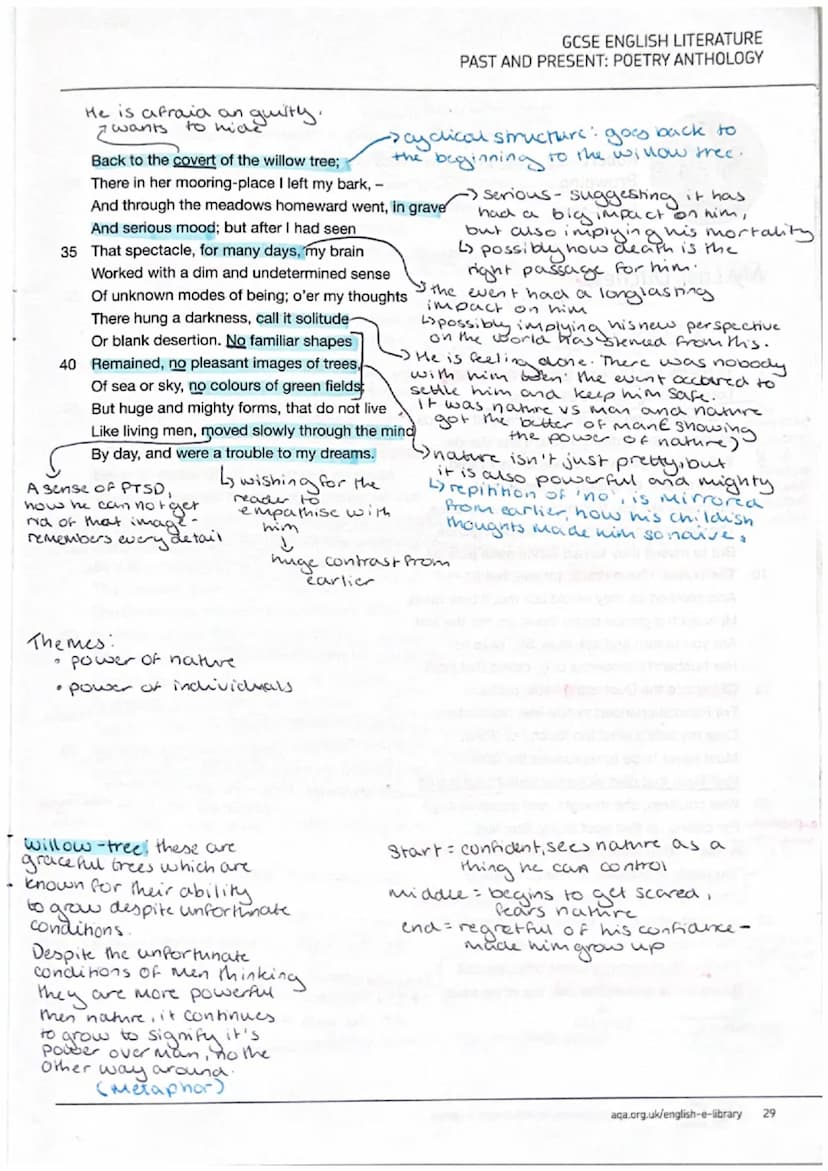 GCSE ENGLISH LITERATURE
PAST AND PRESENT: POETRY ANTHOLOGY
He is afraid an guilty.
wants to hide
→cyclical structure: goes back to
the beginning to the willow tree.
Back to the covert of the willow tree;
There in her mooring-place I left my bark, –
And through the meadows homeward went, in grave
And serious mood; but after I had seen
35 That spectacle, for many days, my brain
Worked with a dim and undetermined sense
Of unknown modes of being; o'er my thoughts
There hung a darkness, call it solitude
Or blank desertion. No familiar shapes
40 Remained, no pleasant images of trees,
Of sea or sky, no colours of green fields;
But huge and mighty forms, that do not live
Like living men, moved slowly through the mind
By day, and were a trouble to my dreams.
→ serious - suggesting it has
had a big impact on him,
but also implying his mortality
↳ possibly how death is the
right passage for him.
the event had a longlasting
impact on him
↳possibly implying his new perspective
on the world has stemed from this.
→ He is feeling alone. There was nobody
with him when the event occured to
settle him and keep him safe.
It was nature vs man and nature
got the better of man (showing
the power of nature)
→nature isn't just pretty, but
it is also powerful and mighty
↳ repitition of 'no', is mirrored
from earlier, how his childish
thoughts made him so naive.
A sense of PTSD,
how he can not get
rid of that image -
remembers every detail
↳ wishing for the
reader to
empathise with
him
↓
huge contrast from
earlier
Themes:
• power of nature
• power of individuals
Willow-tree: these are
graceful trees which are
known for their ability
to grow despite unfortunate
conditions.
Despite the unfortunate
conditions of men thinking
they are more powerful
then nature, it continues
to grow to signify it's
power over man, no the
other way around.
(Metaphor)
Start = confident, sees nature as a
thing he can control
Middle = begins to get scared,
fears nature
end = regretful of his confidance -
made him grow up
aqa.org.uk/english-e-library 29